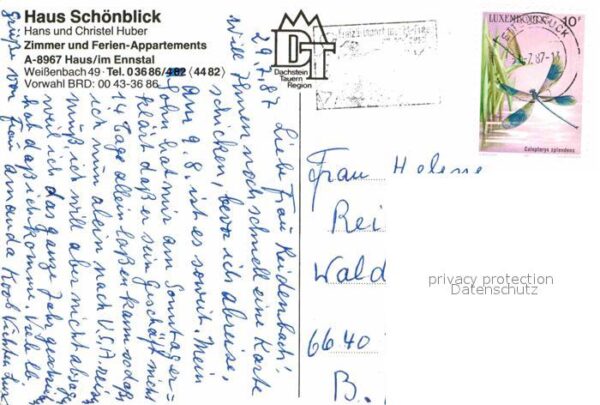 Haus Schönblick
Hans und Christel Huber
Zimmer und Ferien-Appartements
A-8967 Haus/im Ennstal
Weißenbach 49 · Tel. 0 36 86/4 82 (44 82)
Vorwahl BRD: 00 43-36 86
DT
Dachstein
Tauern
Region
LUXEMBOURG
10F
7.87-1
Calopteryx splendens
29.7.87
Liebe Frau Reidenbach!
Will Ihnen noch schnell eine Karte
schicken, bevor ich abreise,
am 9.8. ist es soweit. Mein
Sohn hat mir am Sonntag er-
klärt daß er sein Geschäft nicht
14 Tage allein laßen kann sodaß
ich nun alein nach U.S.A. reisen
muß, ich will aber nicht absagen
weil ich das ganze Jahr geschrieben
hat daß ich komme. Viele lb
Grüße von Frau Amanda Koob
Frau Helene
Rei
Wald
66.40
B.
privacy protection
Datenschutz